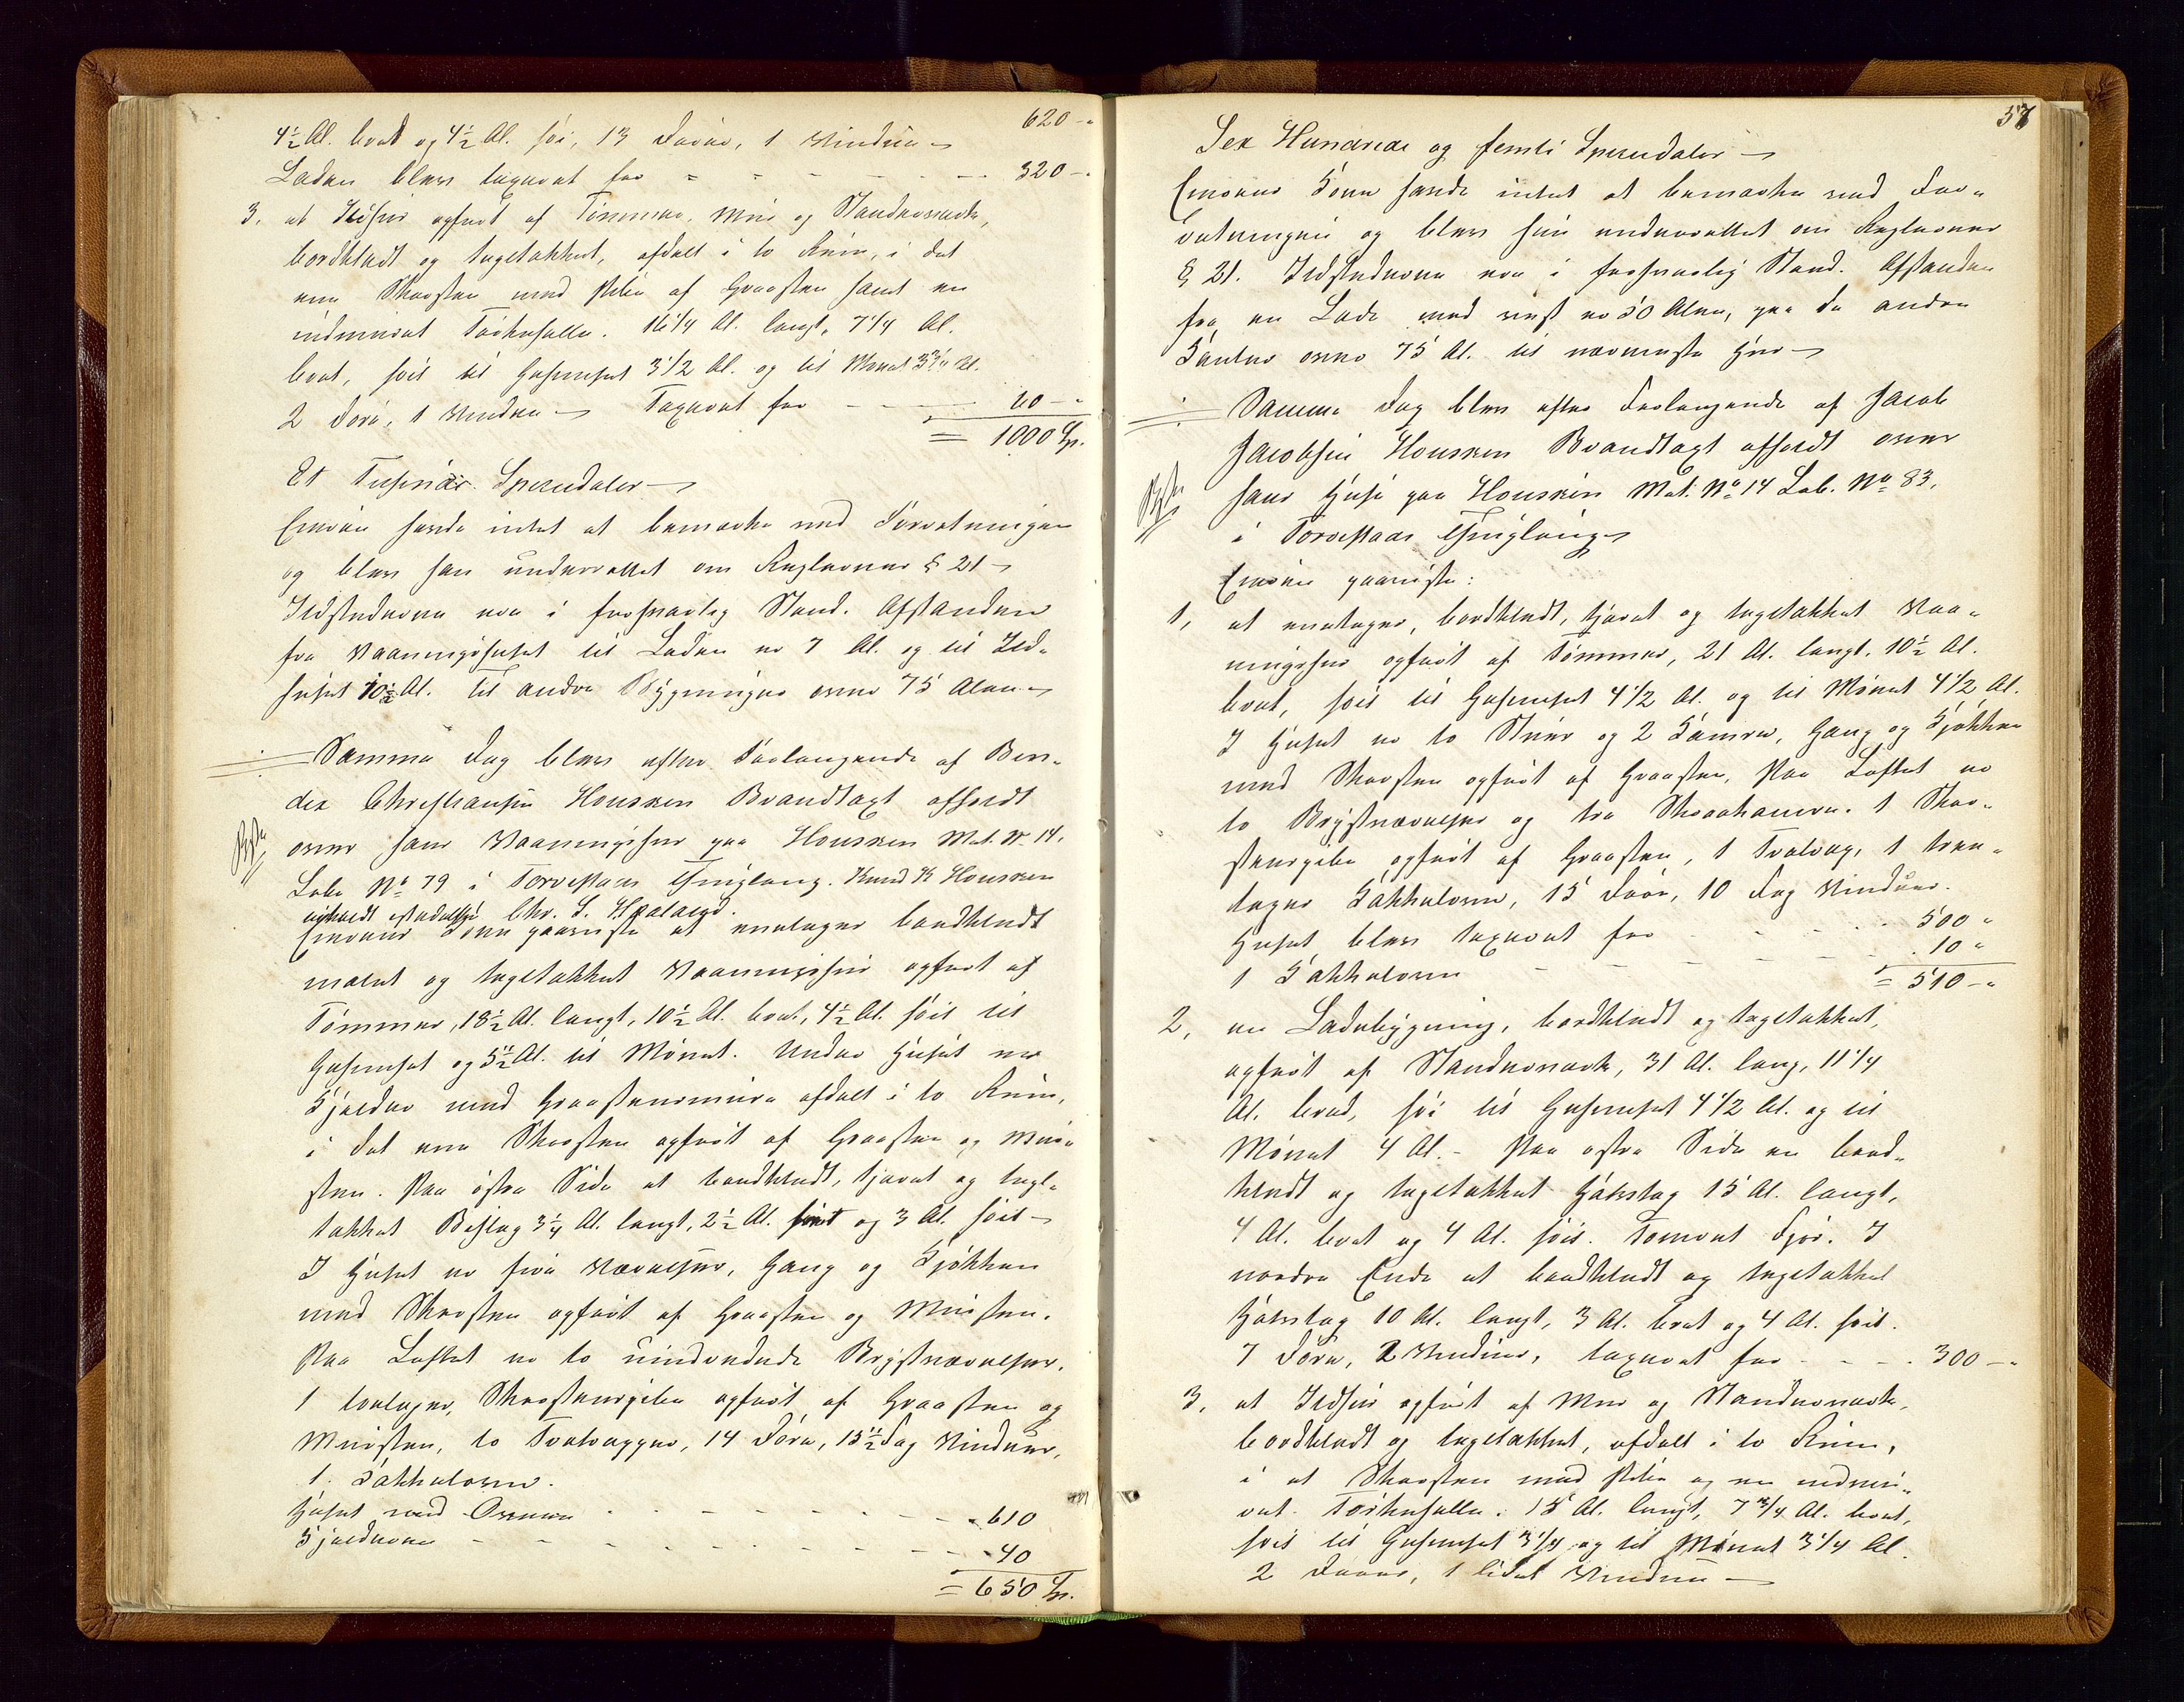 620-"
4½ Al. bred og 4½ Al. høi, 13 Døre, 1 Vindue -
Laden blev taxeret for - - - - - 320-"
3, et Ildhus opført af Tømmer, Mur og Standerværk,
bordklædt og tegltækket, afdelt i to Rum, i det
ene Skorsten med Pibe af Graasten samt en
indmuret Tørkehelle. 16¼ Al. langt, 7¼ Al.
bredt, høit til Gesimset 3½ Al. og til Mønet 3¾ Al.
2 Døre, 1 Vindue - Taxeret for - - 60-"
= 1000 Sp.
Et Tusinde Speciedaler -
Eieren havde intet at bemærke ved Forretningen
og blev han underrettet om Reglernes § 21 -
Ildstederne var i forsvarlig Stand. Afstanden
fra Vaaningshuset til Laden er 7 Al. og til Ild-
huset 10½ Al. til andre Bygninger over 75 Alen -
Samme Dag blev efter Forlangende af Ben-
dix Christiansen Housken Brandtaxt afholdt
over hans Vaaningshus paa Housken Mat. No 14.
Løbe No 79 i Torvestads Thinglaug. Knud K Housken
Chr. S. Haaland.
Eierens Søn paaviste et enetages bordklædt
malet og tegltækket Vaaningshus opført af
Tømmer, 18½ Al. langt, 10½ Al. bredt, 4½ Al. høit til
Gesimset og 5½ Al. til Mønet. Under Huset er
Kjelder med Graastensmure afdelt i to Rum,
i det ene Skorsten opført af Graasten og Mur-
sten. Paa østre Side et bordklædt, tjæret og tegl-
tækket Bislag 3¼ Al. langt, 2½ Al. bredt og 3 Al. høit -
I Huset er fire Værelser, Gang og Kjøkken
med Skorsten opført af Graasten og Mursten.
Paa Loftet er to uindredede Brystværelser.
1 toetages Skorstenspibe opført af Graasten og
Mursten, to Tretrapper, 14 Døre, 15½ Fag Vinduer,
1 Kakkelovn.
Huset med Ovnen - - - - - 610
Kjelderen - - - - - - 40
= 650 Sp.
57
Sex Hundrede og femti Speciedaler -
Eierens Søn havde intet at bemærke ved For-
retningen og blev han underrettet om Reglernes
§ 21. Ildstederne var i forsvarlig Stand. Afstanden
fra en Lade mod vest er 50 Alen, paa de andre
Kanter over 75 Al. til nærmeste Hus -
Samme Dag blev efter Forlangende af Jacob
Jacobsen Housken Brandtaxt afholdt over
hans Huse paa Housken Mat. No 14 Løb. No 83,
i Torvestads Thinglaug -
Eieren paaviste:
1, et enetages, bordklædt, tjæret og tegltækket Vaa-
ningshus opført af Tømmer, 21 Al. langt, 10½ Al.
bredt, høit til Gesimset 4½ Al. og til Mønet 4½ Al.
I Huset er to Stuer og 2 Kamre, Gang og Kjøkken
med Skorsten opført af Graasten, Paa Loftet er
to Brystværelser og tre Skraakamre. 1 Skor-
stenspibe opført af Graasten, 1 Tretrap, 1 tre-
etages Kakkelovn, 15 Døre, 10 Fag Vinduer.
Huset blev taxeret for - - - - 500 "
1 Kakkelovn - - - - - 10 "
= 510-"
2, en Ladebygning, bordklædt og tegltækket,
opført af Standerværk, 31 Al. lang, 11¼
Al. bred, høi til Gesimset 4½ Al. og til
Mønet 4 Al. - Paa østre Side en bord-
klædt og tegltækket Halvtag 15 Al. langt,
4 Al. bredt og 4 Al. høit. Tømret Fjøs. I
nordre Ende et bordklædt og tegltækket
Halvtag 10 Al. langt, 3 Al. bredt og 4 Al. høit.
7 Døre, 2 Vinduer, taxeret for - - - 300-"
3, et Ildhus opført af Mur og Standerværk,
bordklædt og tegltækket, afdelt i to Rum,
i et Skorsten med Pibe og en indmu-
ret Tørkehelle. 15 Al. langt, 7¾ Al. bredt,
høit til Gesimset 3¼ og til Mønet 3¼ Al.
2 Døre, 1 lidet Vindue -